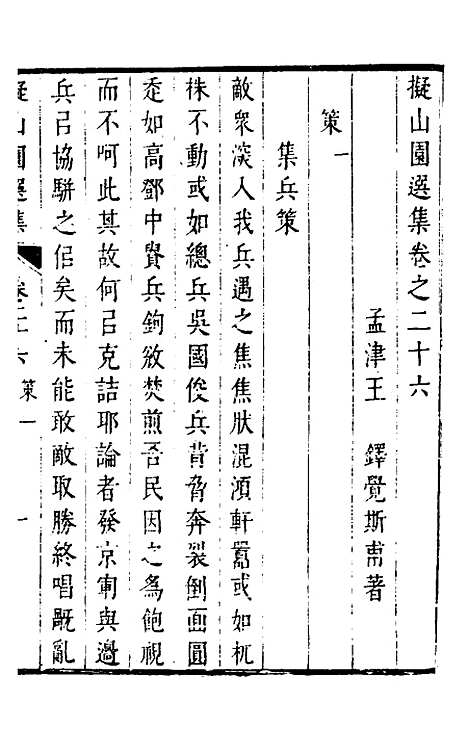 擬山園選集卷之二十六
孟津王　鐸覺斯甫著
策一
集兵策
敵衆深入我兵遇之焦焦肰混澒軒囂或如杌
株不動或如總兵吳國俊兵背脅奔裂倒面圓
而不呵此其故何㠯克詰耶論者發京軍與邊
兵㠯協駢之佀矣而未能敢敵取勝終唱㕢亂
擬山園選集　卷二十六　策一　一